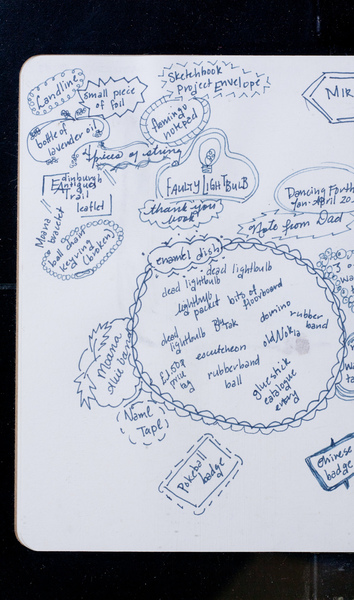 Landline
small piece
of foil
Sketchbook
Project Envelope
MIK
bottle of
lavender oil
flamingo
notepad
4 pieces of string
Edinburgh
Antiques
Trail
leaflet
FAULTY LIGHTBULB
thank you
book
Dancing Forth
Jan-April 201
Note from Dad
Moana bracelet
ball chain
keyring
(broken)
enamel dish
dead lightbulb
dead lightbulb
lightbulb
packet
bits of
floorboard
dead
lightbulb
domino
rubber
band
old Nokia
£1.50p
price
tag
escutcheon
rubberband
ball
gluestick
catalogue
Moana
Name
Tape
Pokeball
badge
Chinese
badge